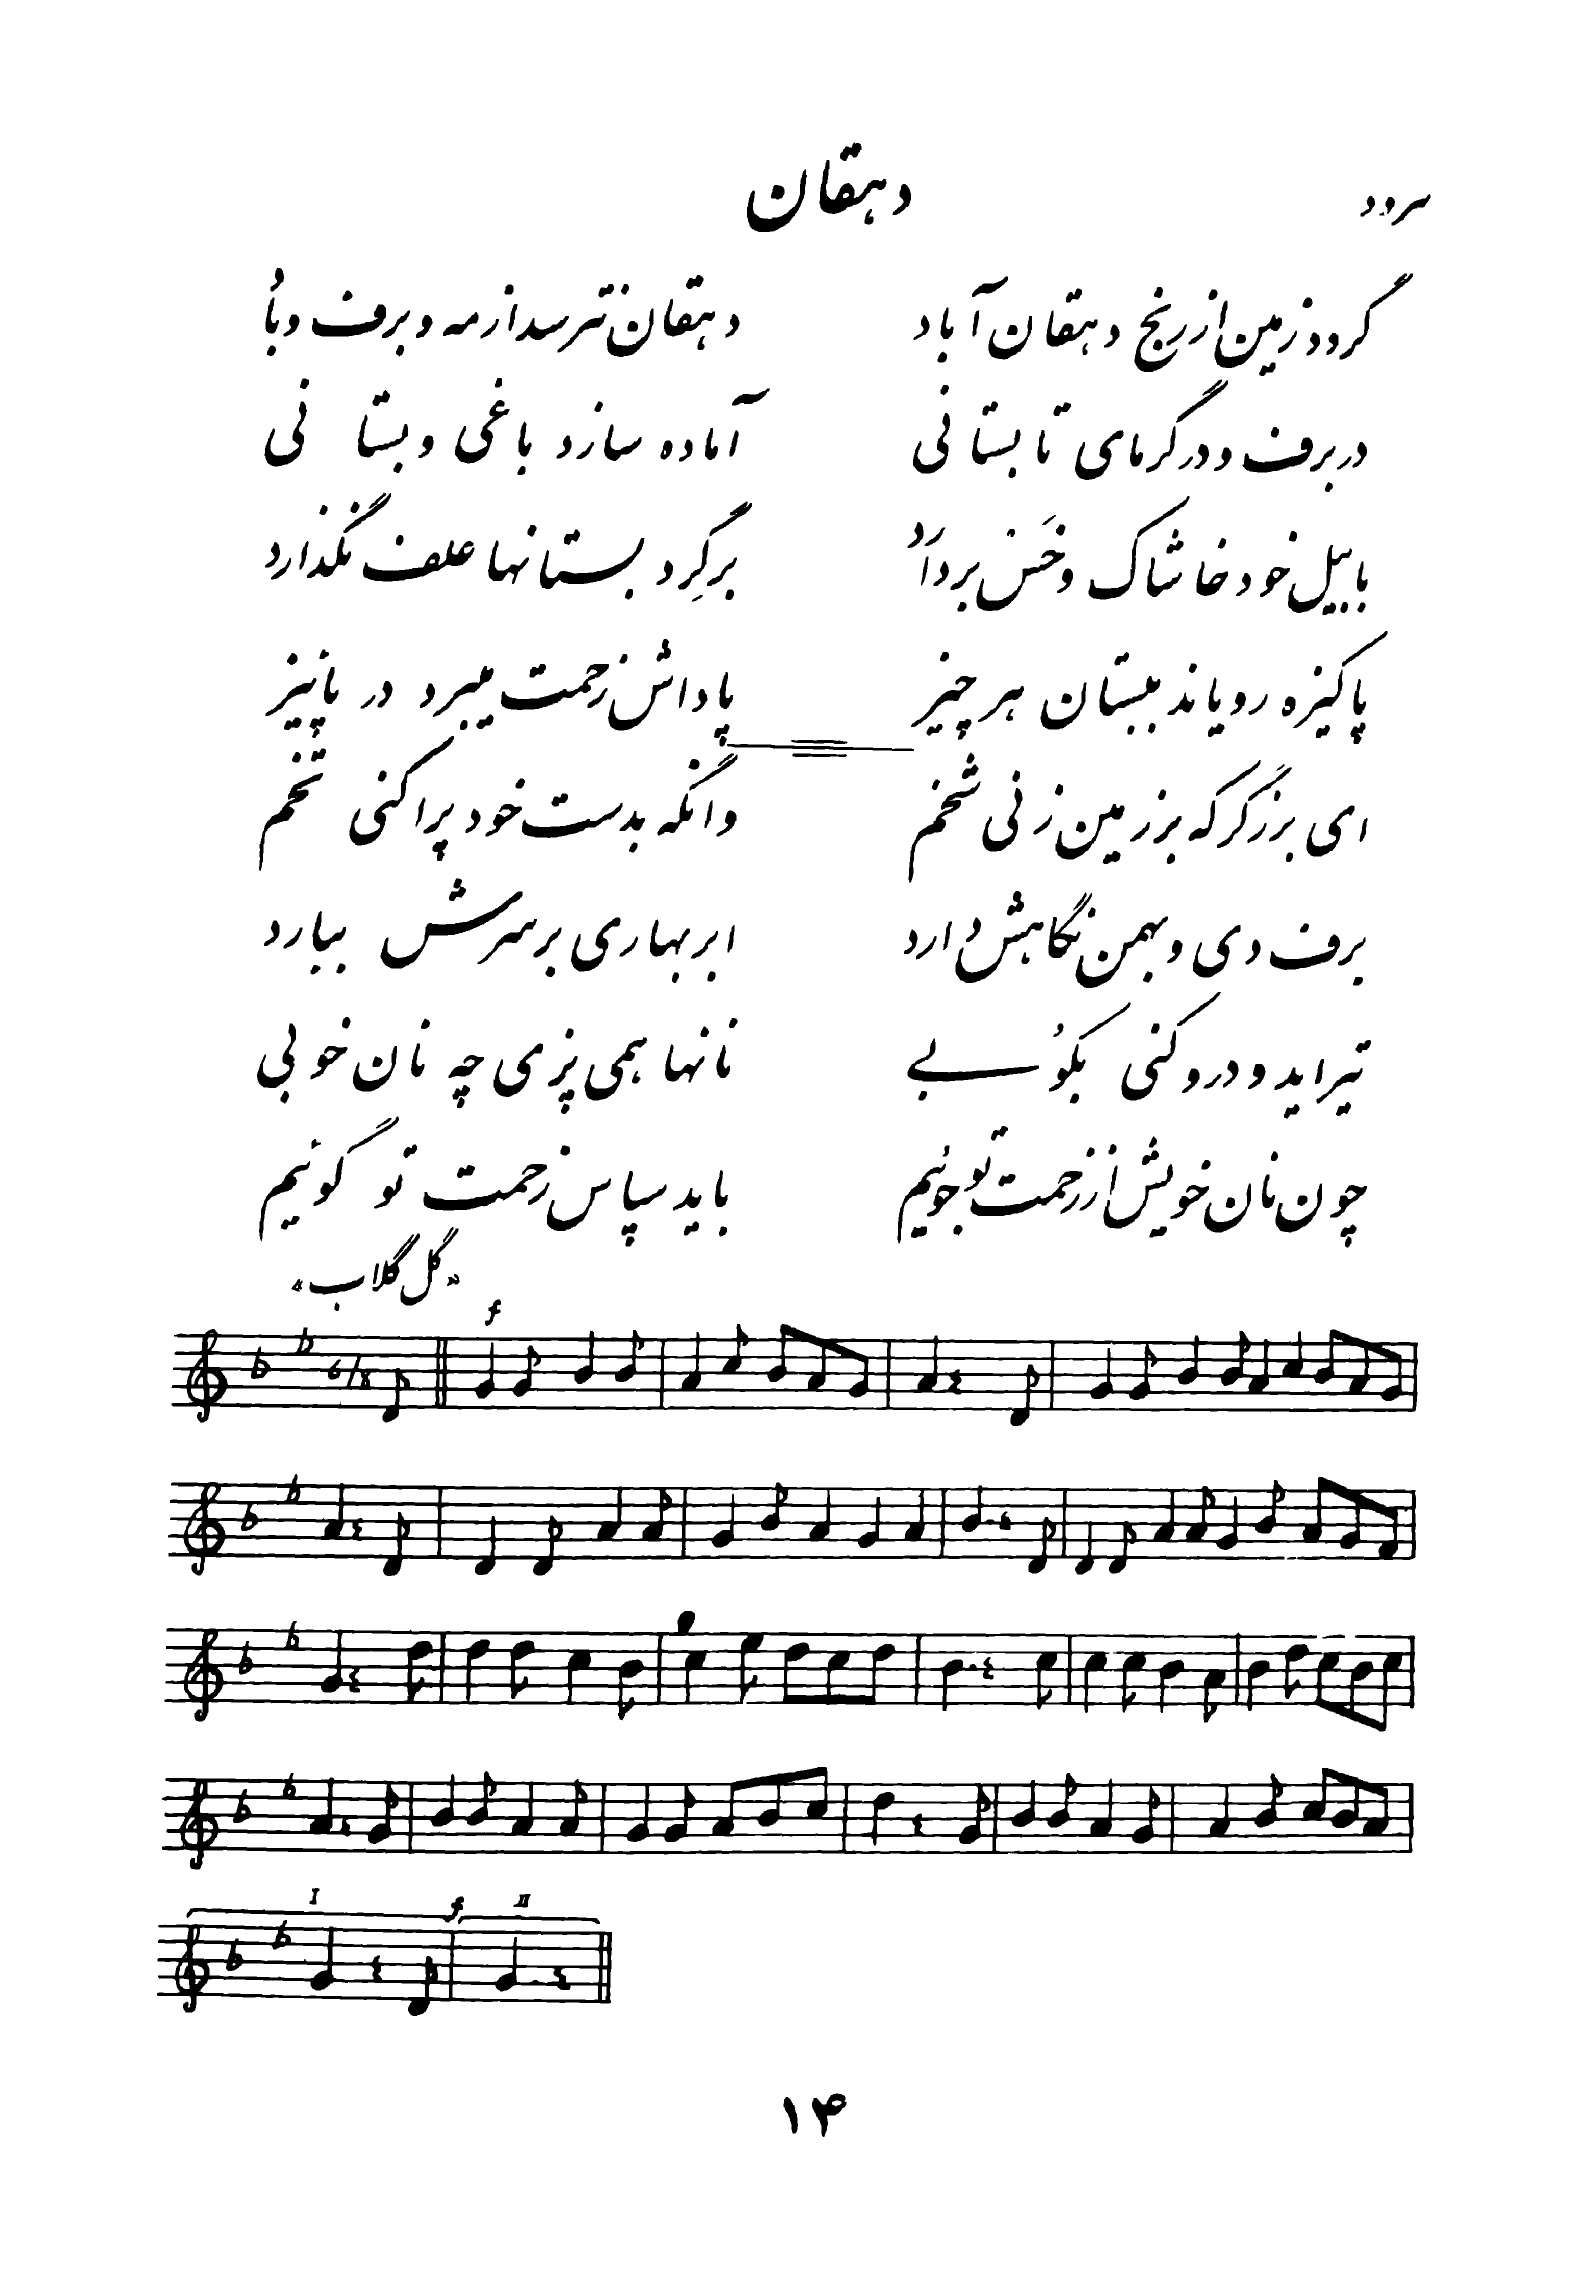 سرود
دهقان
گردد زمین از رنج دهقان آباد دهقان نترسد از مه و برف و باد
در برف و در گرمای تابستانی آماده سازد باغی و بستانی
با بیل خود خاشاک و خَس بردارَد بر گِرد بستانها علف نگذارد
پاکیزه رویاند ببستان هر چیز پاداش زحمت میبرد در پائیز
ای برزگر که بر زمین زنی شخم وانگه بدست خود پراکنی تخم
برف دی و بهمن نگاهش دارد ابر بهاری بر سرش ببارد
تیر اید و درو کنی بکوبی نانها همی پزی چه نان خوبی
چون نان خویش از زحمت تو جوئیم باید سپاس زحمت تو گوئیم
«گل گلاب»
f
6/8
I f II
۱۴